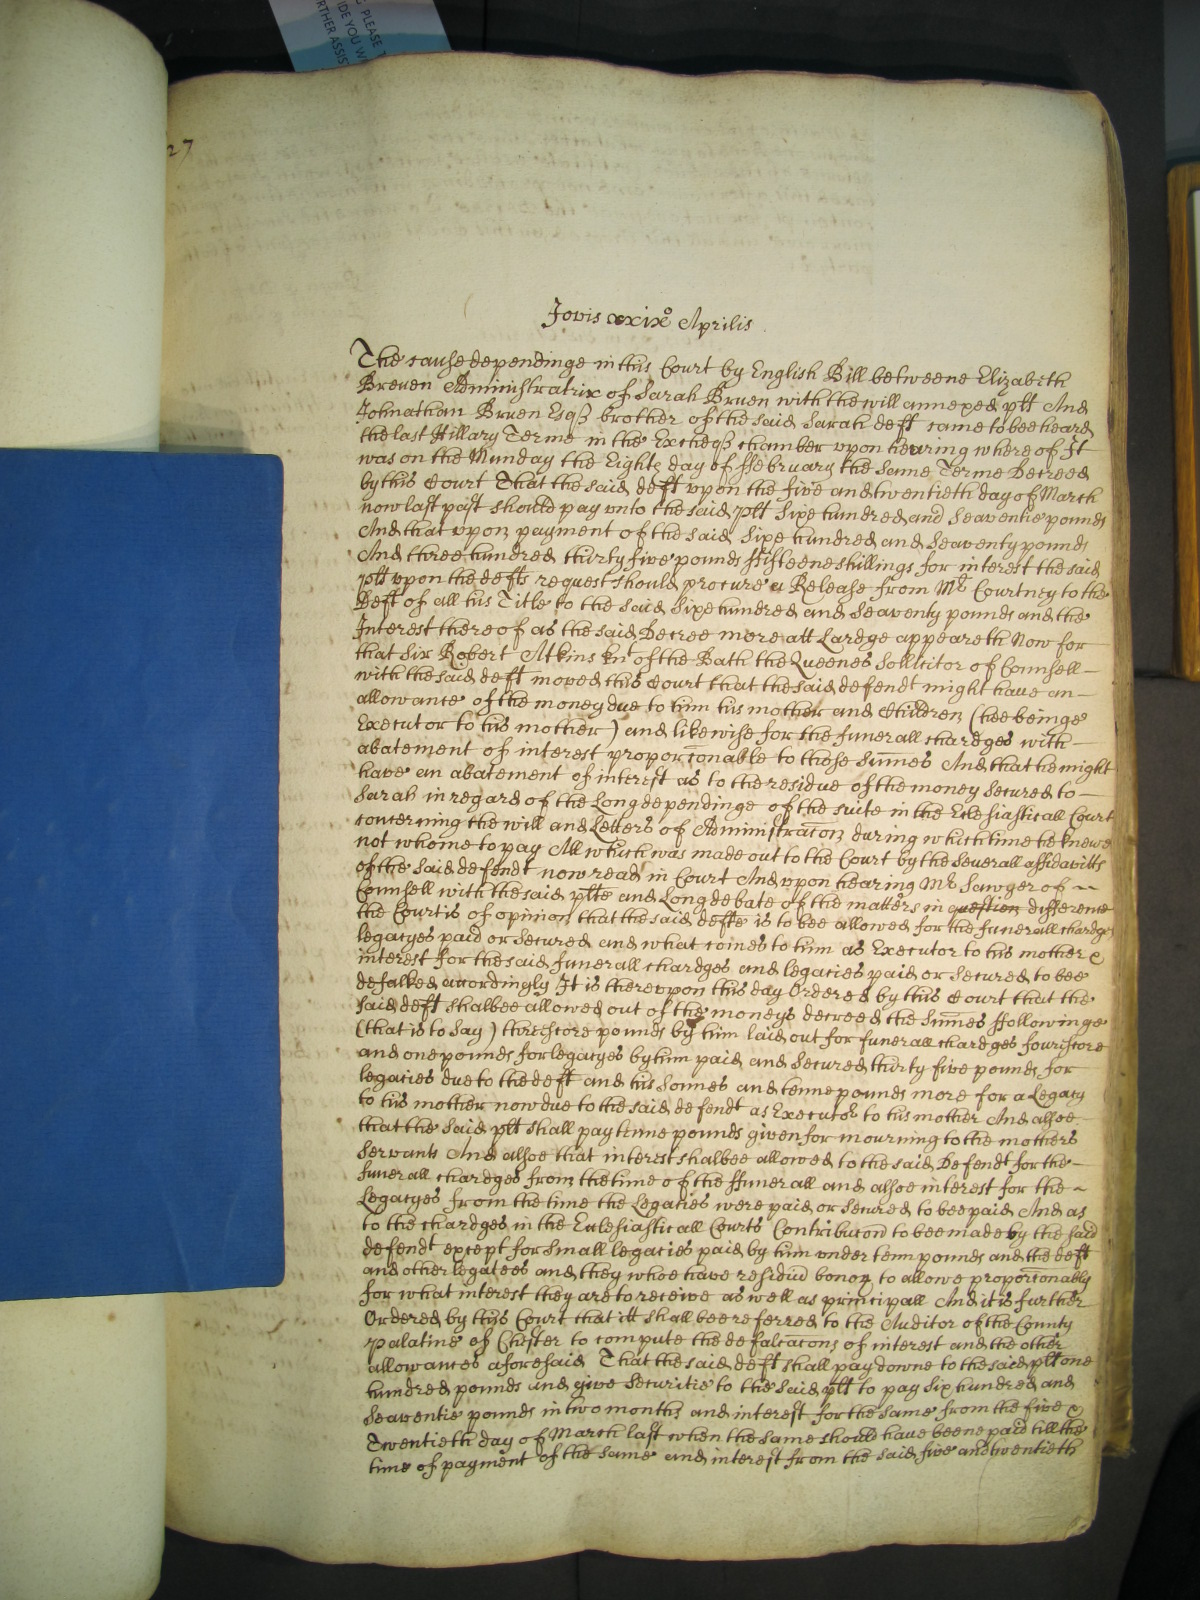 PLEASE
IDE YOU W
RTHER ASSIS
27
Jovis xxix° Aprilis
The cause dependinge in this Court by English Bill betweene Elizabeth
Breuen Administratrix of Sarah Bruen with the will annexed plt And
Johnathan Bruen Esqr brother of the said Sarah deft came to bee heard
the last Hillary Terme in the Excheqr chamber vpon hearing whereof It
was on the Munday the Eight day of ffebruary the same Terme Decreed
by this Court That the said deft vpon the five and twentieth day of March
now last past should pay vnto the said plt Sixe hundred and Seaventie pounds
And that vpon payment of the said Sixe hundred and Seaventy pounds
And three hundred thirty five pounds ffifteene shillings for interest the said
plt vpon the defts request should procure a Release from Mr Courtney to the
Deft of all his Title to the said Sixe hundred and Seaventy pounds and the
Interest thereof as the said Decree more att Lardge appeareth Now for
that Sir Robert Atkins knt of the Bath the Queenes Sollicitor of Counsell
with the said deft moved this Court that the said defendt might have an
allowance of the money due to him his mother and Children (hee beinge
Executor to his mother) and likewise for the funerall chardges with
abatement of interest proporconable to those Summes And that he might
have an abatement of interest as to the residue of the money Secured to
Sarah in regard of the Long dependinge of the suite in the Eclesiasticall Court
concerning the will and Letters of Administracon during which time he knewe
not whome to pay All which was made out to the Court by the severall affidavitts
of the said defendt now read in Court And vpon hearing Mr Sawyer of
Counsell with the said plte and Long debate of the matters in question difference
the Court is of opinion that the said defte is to bee allowed for the funerall chardge
legacyes paid or secured and what comes to him as Executor to his mother &
interest for the said funerall chardges and legacies paid or Secured to bee
defalked accordingly It is therevpon this day Ordered by this Court that the
said deft shalbee allowed out of the moneys decreed the Summes ffollowinge
(that is to say) threescore pounds by him laid out for funerall chardges fourscore
and one pounds for legacyes by him paid and Secured thirty five pounds for
legacies due to the deft and his Sonnes and tenne pounds more for a Legacy
to his mother now due to the said defendt as Executor to his mother And alsoe
that the said plt shall pay tenne pounds given for mourning to the mothers
Servants And alsoe that interest shalbee allowed to the said Defendt for the
funerall chardges from the time of the ffunerall and alsoe interest for the
Legacyes from the time the Legacies were paid or Secured to bee paid And as
to the chardges in the Eclesiasticall Courts Contribucon to bee made by the said
defendt except for small legacies paid by him vnder tenn pounds and the deft
and other legatees and they whoe have residuu bonor to allowe proporconably
for what interest they are to receive as well as principall And it is further
Ordered by this Court that itt shall bee referred to the Auditor of the County
Palatine of Chester to compute the defalcacons of interest and the other
allowances aforesaid That the said deft shall pay downe to the said plt one
hundred pounds and give Securitie to the said plt to pay Six hundred and
Seaventie pounds in two months and interest for the same from the five &
Twentieth day of March last when the same should have beene paid till the
time of payment of the same and interest from the said five and twentieth